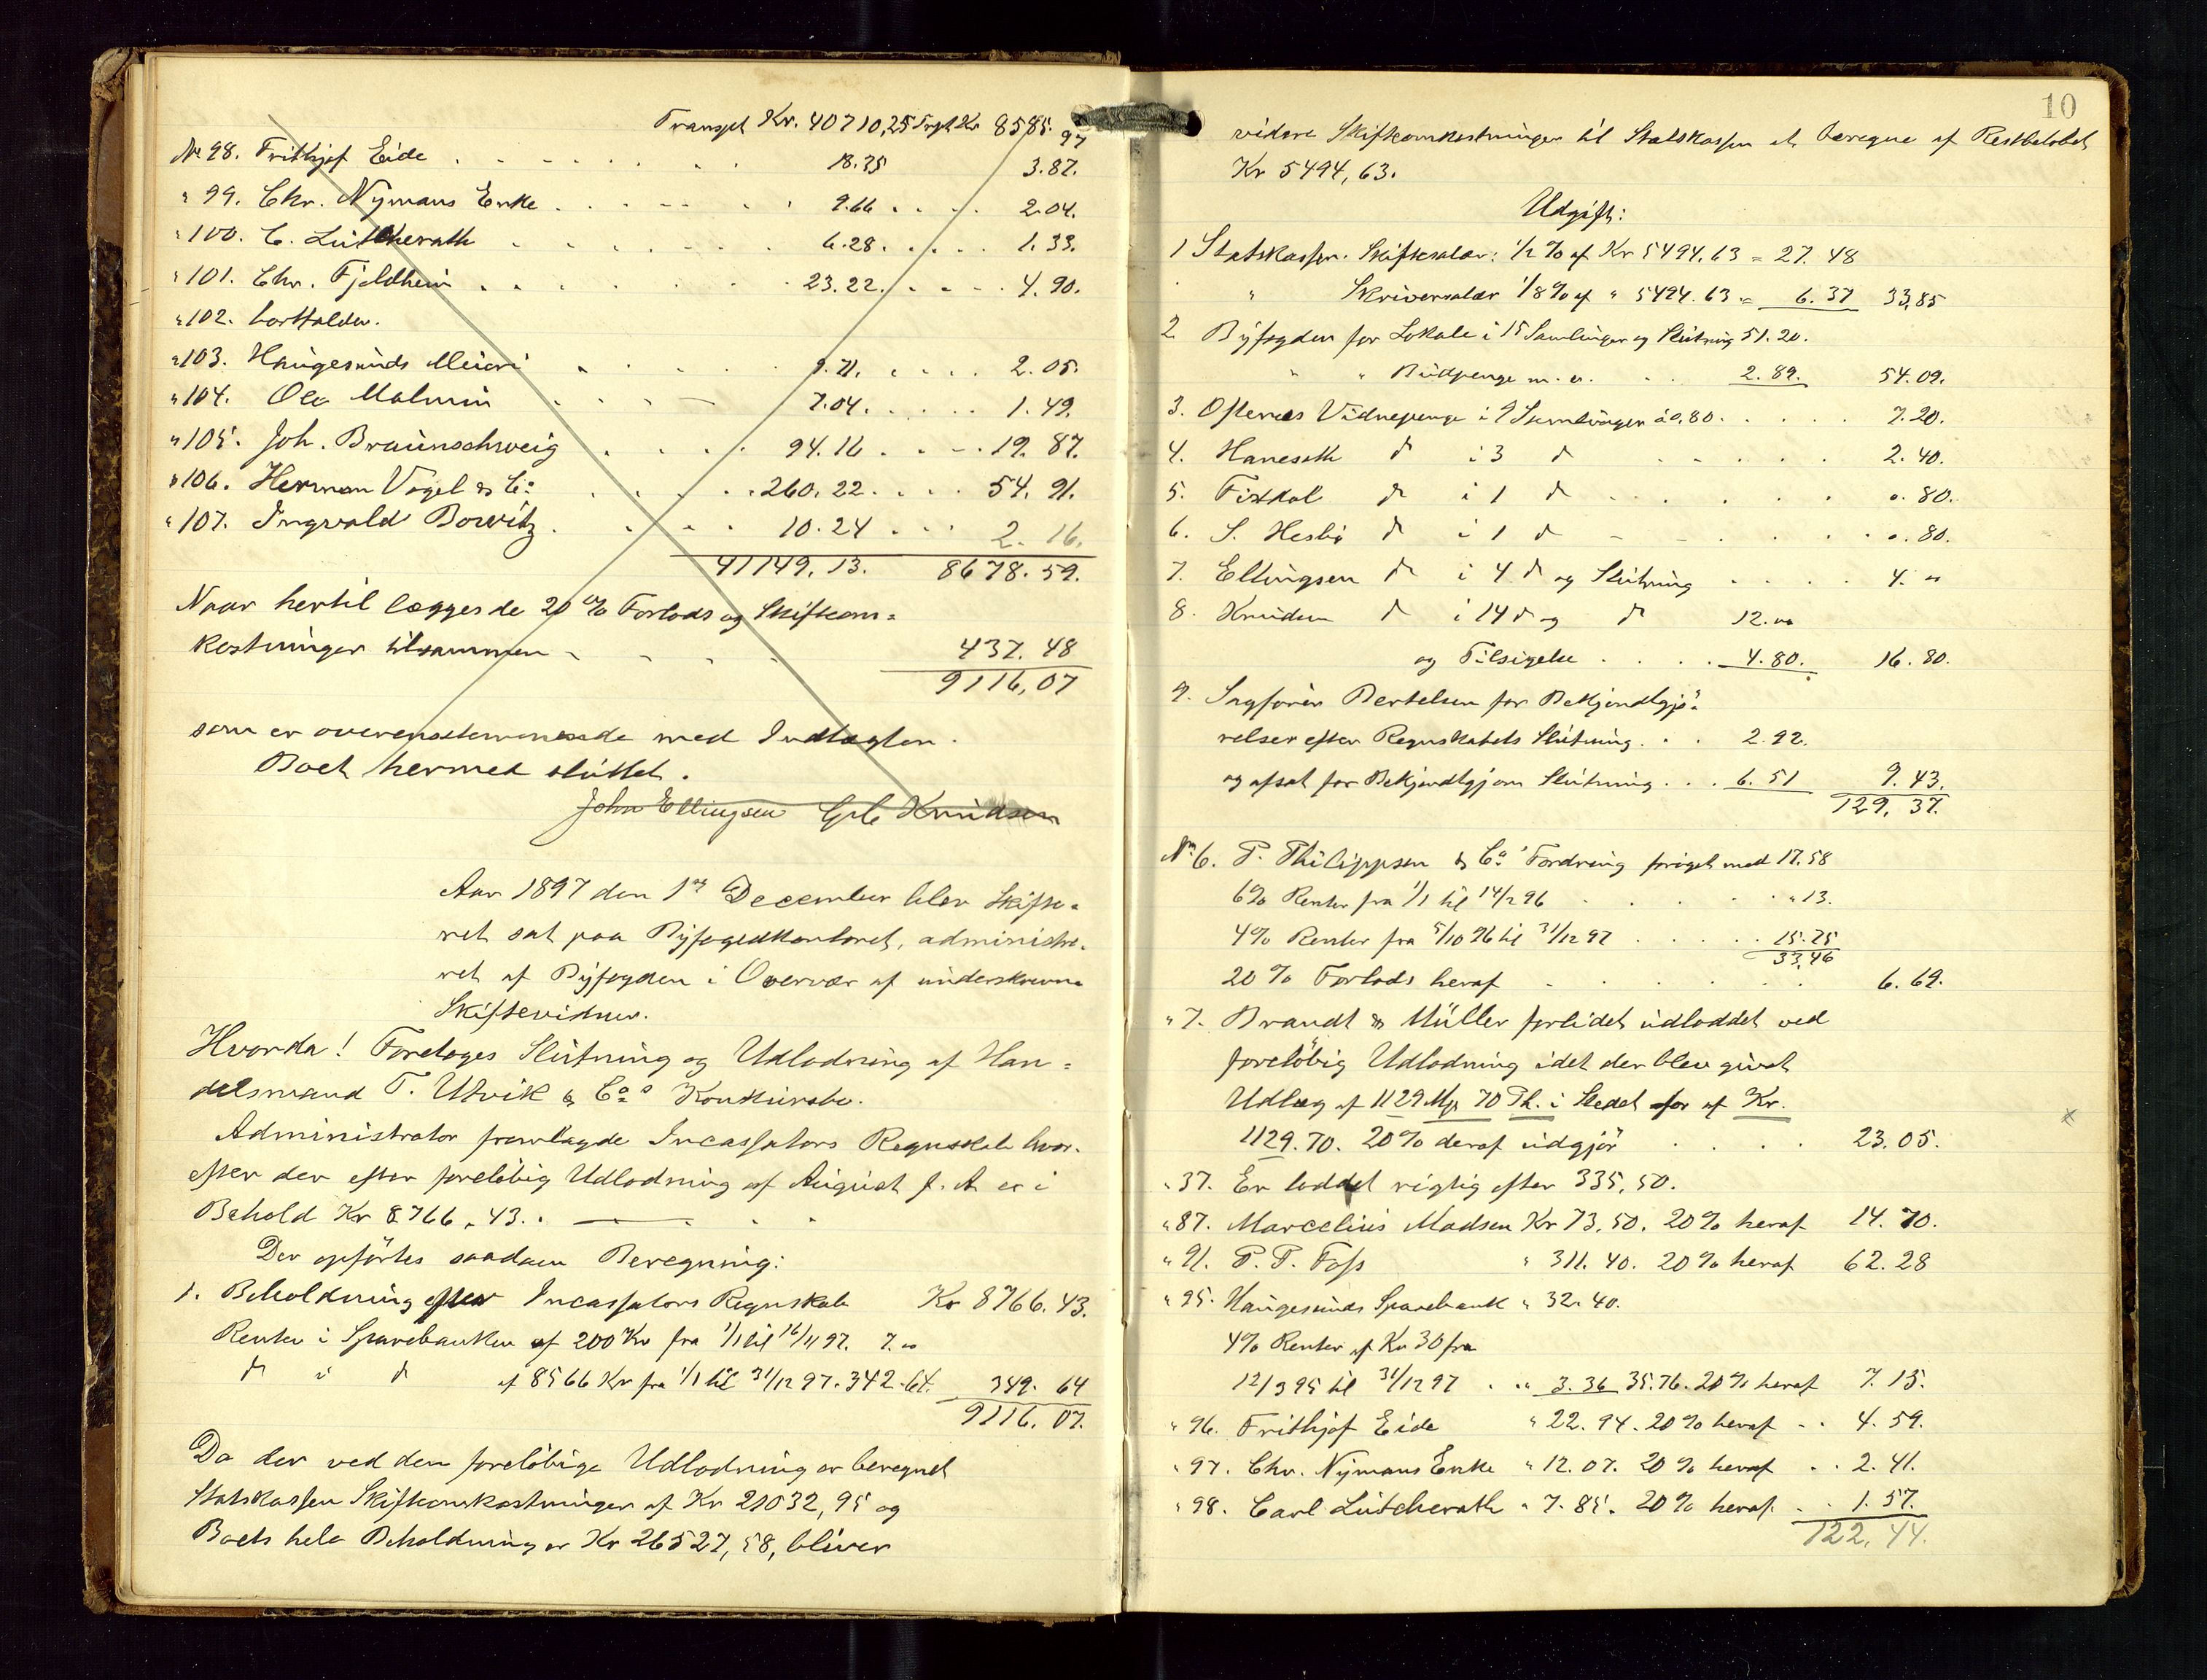 Transpt Kr. 40710,25 Trspt Kr 8585.97
No 98. Frithjof Eide . . . . . 18.35 3.87.
" 99. Chr. Nymans Enke . . . . . 9.66 . . . . 2.04.
" 100. C. Lütcherath . . . . . 6.28 . . . . 1.33.
" 101. Chr. Fjeldheim . . . . . 23.22 . . . . 4.90.
" 102. bortfalder.
" 103. Haugesunds Meieri . . . . 9.71. . . . . 2.05.
" 104. Ole Malmin . . . . 7.04. . . . . 1.49.
" 105. Joh. Braunschweig . . . . 94.16 . . . . 19.87.
" 106. Herman Vogel & Co . . . . 260.22 . . . . 54.91.
" 107. Ingvald Bowitz . . . . 10.24 . . . 2.16.
41149.13. 8678.59.
Naar hertil lægges de 20 % Forlods og Skifteom=
kostninger tilsammen - - - - 437.48
9116,07
som er overensstemmende med Indtægten.
Boet hermed sluttet.
John Ellingsen Knudsen
Aar 1897 den 1ste December blev Skifte=
ret sat paa Byfogedkontoret, administre=
ret af Byfogden i Overvær af underskrevne
Skiftevidner.
Hvorda! Foretoges Slutning og Udlodning af Han=
delsmand T. Utvik & Co's Konkursbo.
Administrator fremlagde Incassators Regnskab hvor=
efter der efter foreløbig Udlodning af August f. A. er i
Behold Kr 8766.43. .
Der opførtes saadan Beregning:
1. Beholdning efter Incassators Regnskab Kr 8766.43.
Renter i Sparebanken af 200 Kr fra 1/1 til 16/11 97. 7.00
do i do af 8566 Kr fra 1/1 til 31/12 97. 342.64. 349.64
9116.07.
Da der ved den foreløbige Udlodning er beregnet
Statskassen Skifteomkostninger af Kr 21032,95 og
Boets hele Beholdning er Kr 26527,58, bliver
10
videre Skifteomkostninger til Statskassen at beregne af Restbeløbet
Kr 5494,63.
Udgift:
1 Statskassen. Skiftesalær: 1/2 % af Kr 5494.63 = 27.48
" Skriversalær 1/8 % af " 5494.63 = 6.37 33,85
2 Byfogden for Lokale i 15 Samlinger og Slutning 51.20.
" " Budpenge m. v. . . 2.89. 54.09.
3. Ofternes Vidnepenge i 9 Samlinger à 0,80. . . . . 7.20.
4. Haneseth do i 3 do . . . . . 2.40.
5. Fixdal do i 1 do . . . . . 0.80.
6. S. Hesbø do i 1 do . . . . . 0.80.
7. Ellingsen do i 4 do og Slutning . . . . 4.00
8. Knudsen do i 14 do og do 12.00
og Tilsigelse . . . . 4.80. 16.80.
9. Sagfører Bertelsen for Bekjendtgjø=
relser efter Regnskabets Slutning. . . 2.92.
og afsat for Bekjendtgj om Slutning . . . 6.51 9.43.
129.37.
No 6. P. Philippsen & Co's Fordring forøget med 17.58
6% Renter fra 1/1 til 14/2 96 . . . . . " 13.
4% Renter fra 5/10 96 til 31/12 97 . . . . . 15.75
33,46
20 % Forlods heraf . . . . . . 6.69.
" 7. Brandt & Müller forlidet udloddet ved
foreløbig Udlodning idet der blev givet
Udlæg af 1129 Mk 70 Pf. i Stedet for af Kr.
1129.70. 20% deraf udgjør . . . . 23.05.
" 37. Er loddet rigtig efter 335,50.
" 87. Marcelius Madsen Kr 73.50. 20% heraf 14.70.
" 91. P. T. Foss " 311.40. 20% heraf 62.28
" 95. Haugesunds Sparebank " 32.40.
4% Renter af Kr 30 fra
12/3 95 til 31/12 97 . . " 3.36 35.76. 20% heraf 7.15.
" 96. Frithjof Eide " 22.94. 20% heraf . . 4.59.
" 97. Chr. Nymans Enke " 12.07. 20% heraf . . 2.41.
" 98. Carl Lütcherath " 7.85. 20% heraf. . . 1.57.
122.44.